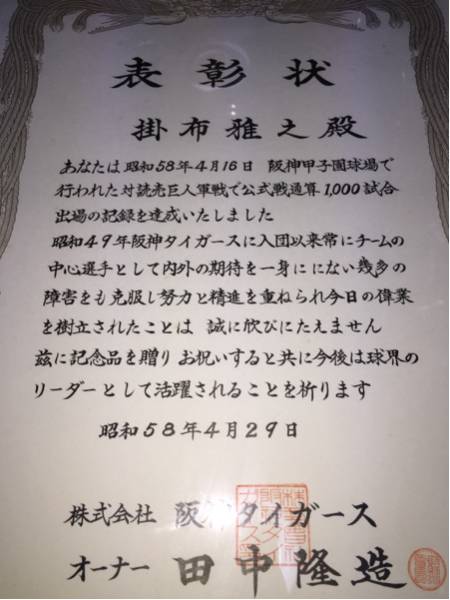 表彰状
掛布雅之殿
あなたは昭和58年4月16日 阪神甲子園球場で
行われた対読売巨人軍戦で公式戦通算1,000試合
出場の記録を達成いたしました
昭和49年阪神タイガースに入団以来常にチームの
中心選手として内外の期待を一身ににない幾多の
障害をも克服し努力と精進を重ねられ今日の偉業
を樹立されたことは 誠に欣びにたえません
茲に記念品を贈り お祝いすると共に今後は球界の
リーダーとして活躍されることを祈ります
昭和58年4月29日
株式会社 阪神タイガース
オーナー 田中隆造